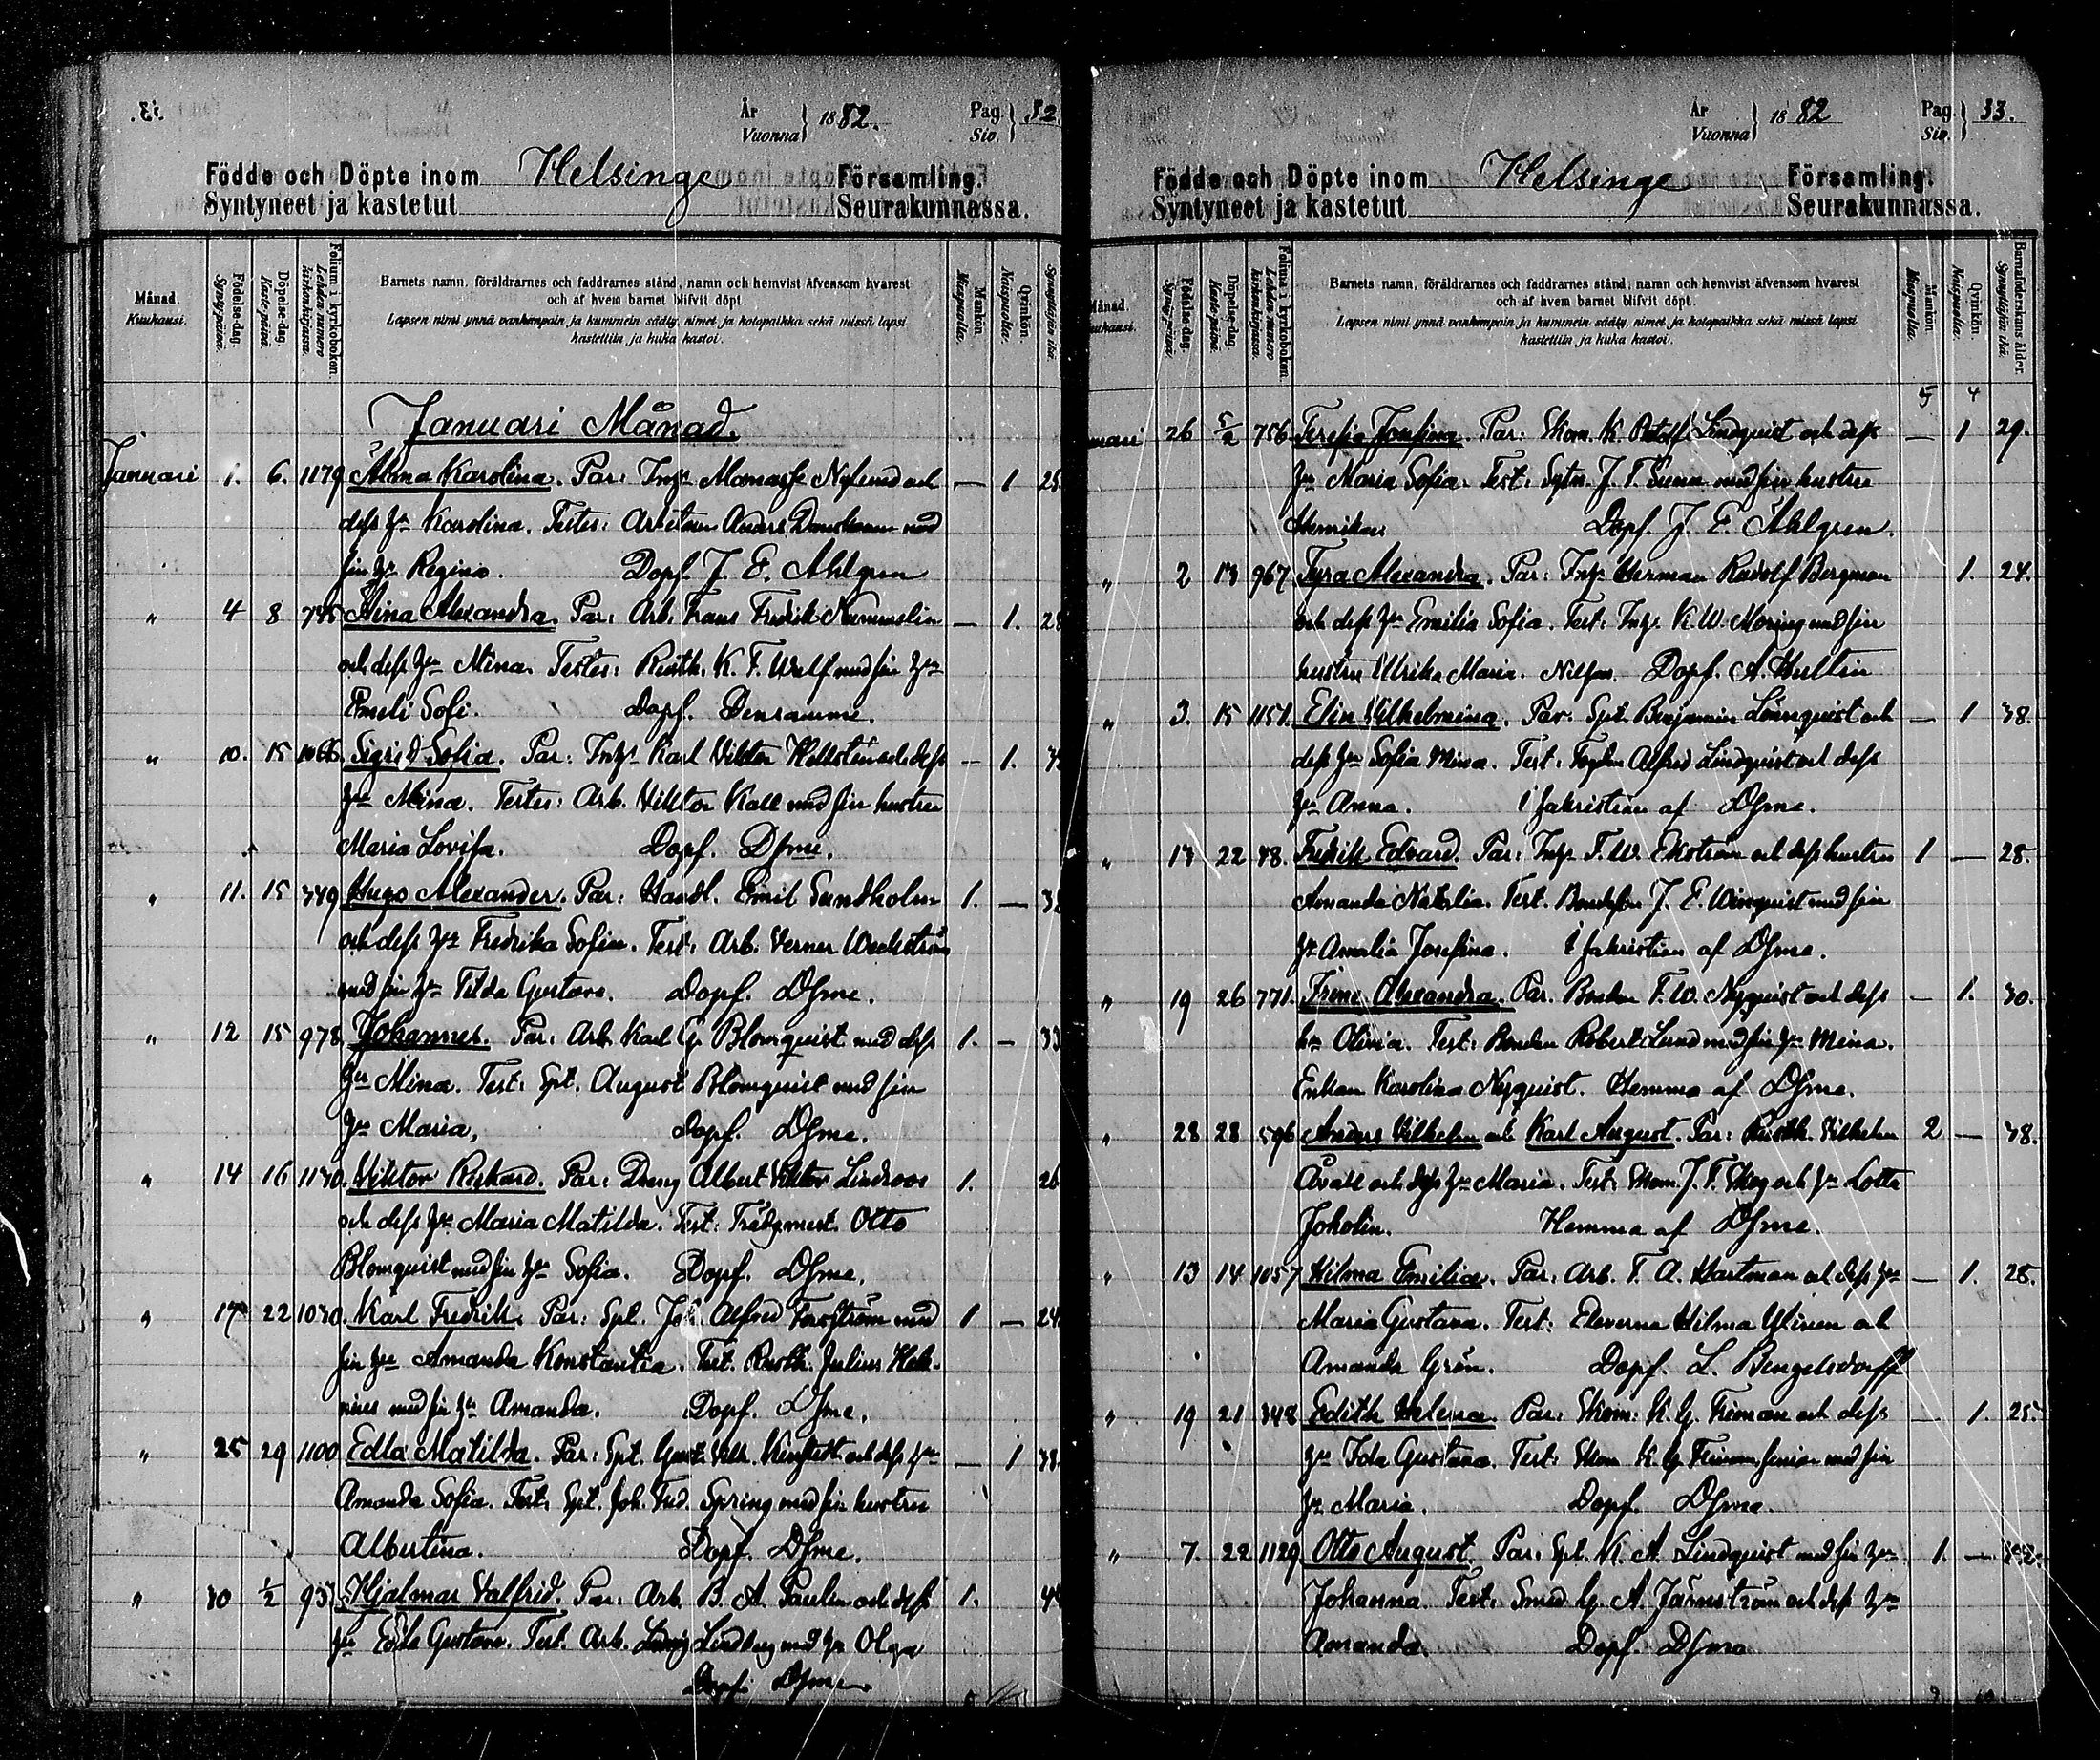 År
Vuonna
1882.
Pag.
Siv.
32
Födde och Döpte inom Helsinge Församling.
Syntyneet ja kastetut Seurakunnassa.
Månad.
Kuukausi.
Födelse-dag.
Syntypäivä.
Döpelse-dag.
Kaste-päivä.
Folium i kyrkoboken.
Lehden numero kirkonkirjassa.
Barnets namn, föräldrarnes och faddrarnes stånd, namn och hemvist äfvensom hvarest
och af hvem barnet blifvit döpt.
Lapsen nimi ynnä vanhempain ja kummein sääty, nimet ja kotopaikka sekä missä lapsi
kastettiin ja kuka kastoi.
Mankön.
Miespuolia.
Qvinkön.
Naispuolia.
Januari Månad.
Januari 1. 6. 1179 Alma Karolina. Par: Inhs Manasse Nylund och — 1 25
dess hu Karolina. Testes: Arbetaren Anders Danskanen med
sin hu Regina. Dopf. J. E. Ahlgren
" 4 8 745 Aina Alexandra. Par: Arb. Frans Fredrik Nummelin — 1. 28
och dess hu Mina. Testes: Rusth. K. F. Wulf med sin hu
Emeli Sofi. Dopf. Densamme.
" 10. 15 1066. Sigrid Sofia. Par: Inhs Karl Viktor Hellsten och dess — 1.
hu Mina. Testes: Arb. Viktor Kall med sin hustru
Maria Lovisa. Dopf. Dsme.
" 11. 15 349 Hugo Alexander. Par: Handl. Emil Sundholm 1. —
och dess hu Fredrika Sofia. Test: Arb. Verner Weckström
med sin hu Tilda Gustava. Dopf. Dsme.
" 12 15 978. Johannes. Par: Arb. Karl G. Blomquist med dess 1. — 33
hu Mina. Test: Spt. August Blomquist med sin
hu Maria, Dopf. Dsme.
" 14 16 1130. Viktor Rikard. Par: Dreng Albert Viktor Lindroos 1. 26
och dess hu Maria Matilda. Test: Trädgmest. Otto
Blomquist med sin hu Sofia. Dopf. Dsme.
" 17 22 1030. Karl Fredrik. Par: Spt. Joh. Alfred Forsström med 1 — 24
sin hu Amanda Konstantia. Test. Rusth. Julius Hen-
med sin hu Amanda. Dopf. Dsme.
" 25 29 1100 Edla Matilda. Par: Spt. Gust. Vilh. och dess hu — 1 38
Amanda Sofia. Test: Spt. Joh. Fred. Spring med sin hustru
Albertina. Dopf. Dsme.
" 30 1/2 953 Hjalmar Valfrid. Par. Arb. B. A. Paulin och dess 1. 44
hu Edla Gustava. Test. Arb. Ludvig Lindberg med hu Olga
Dopf. Dsme
År
Vuonna
1882
Pag.
Siv.
33.
Födde och Döpte inom Helsinge Församling.
Syntyneet ja kastetut Seurakunnassa.
Månad.
Kuukausi.
Födelse-dag.
Syntypäivä.
Döpelse-dag.
Kaste-päivä.
Folium i kyrkoboken.
Lehden numero kirkonkirjassa.
Barnets namn, föräldrarnes och faddrarnes stånd, namn och hemvist äfvensom hvarest
och af hvem barnet blifvit döpt.
Lapsen nimi ynnä vanhempain ja kummein sääty, nimet ja kotopaikka sekä missä lapsi
kastettiin ja kuka kastoi.
Mankön.
Miespuolia.
Qvinkön.
Naispuolia.
Barnaföderskans ålder.
Synnyttäjän ikä.
5 4
nuari 26 5/2 756 Teresia Josefina. Par: Skom. K. Rudolf Lindquist och dess — 1 29.
hu Maria Sofia. Test: Sytn. J. F. Sunn med sin hustru
Henrika. Dopf. J. E. Åhlgren.
" 2 13 967 Tyra Alexandra. Par: Inhs Herman Rudolf Bergman 1. 24.
och dess hu Emilia Sofia. Test: Inhs. K. W. Moring med sin
hustru Ulrika Maria. Dopf. A. Hultin
" 3. 15 1151. Elin Vilhelmina. Par: Spt. Benjamin Lönnquist och — 1 38.
dess hu Sofia Mina. Test: Alfred Lindquist och dess
hu Anna. i sakristian af Dsme.
" 13 22 38. Fredrik Edvard. Par: Inhs F. W. Ekström och dess hustru 1 — 25.
Amanda Natalia. Test. Bondeson J. E. Winquist med sin
hu Amalia Josefina. i sakristian af Dsme.
" 19 26 771. Irene Alexandra. Par. Bonden F. W. Nyquist och dess — 1. 30.
hu Olivia. Test: Bonden Robert Lund med sin hu Mina.
Enkan Karolina Nyquist. Hemma af Dsme.
" 28 28 596 Anders Vilhelm och Karl August. Par: Rusth. Vilhelm 2 — 38.
och dess hu Maria. Test: Skom. J. F. Skog och hu Lotta
Joholin. Hemma af Dsme.
" 13 14 1057 Hilma Emilia. Par: Arb. F. A. Hartman och dess hu — 1. 25.
Maria Gustava. Test: Eleverna Hilma Ylinen och
Amanda Grön. Dopf. L. Bengelsdorff
" 19 21 348 Edith Helena. Par: Skom. K. G. Friman och dess — 1. 25.
hu Ida Gustava. Test: Skom K. G. Friman senior med sin
hu Maria. Dopf. Dsme.
" 7. 22 1129 Otto August. Par: Spt. K. A. Lindquist med sin hu 1. —
Johanna. Test: Smed G. A. Järnström och dess hu
Amanda. Dopf. Dsme